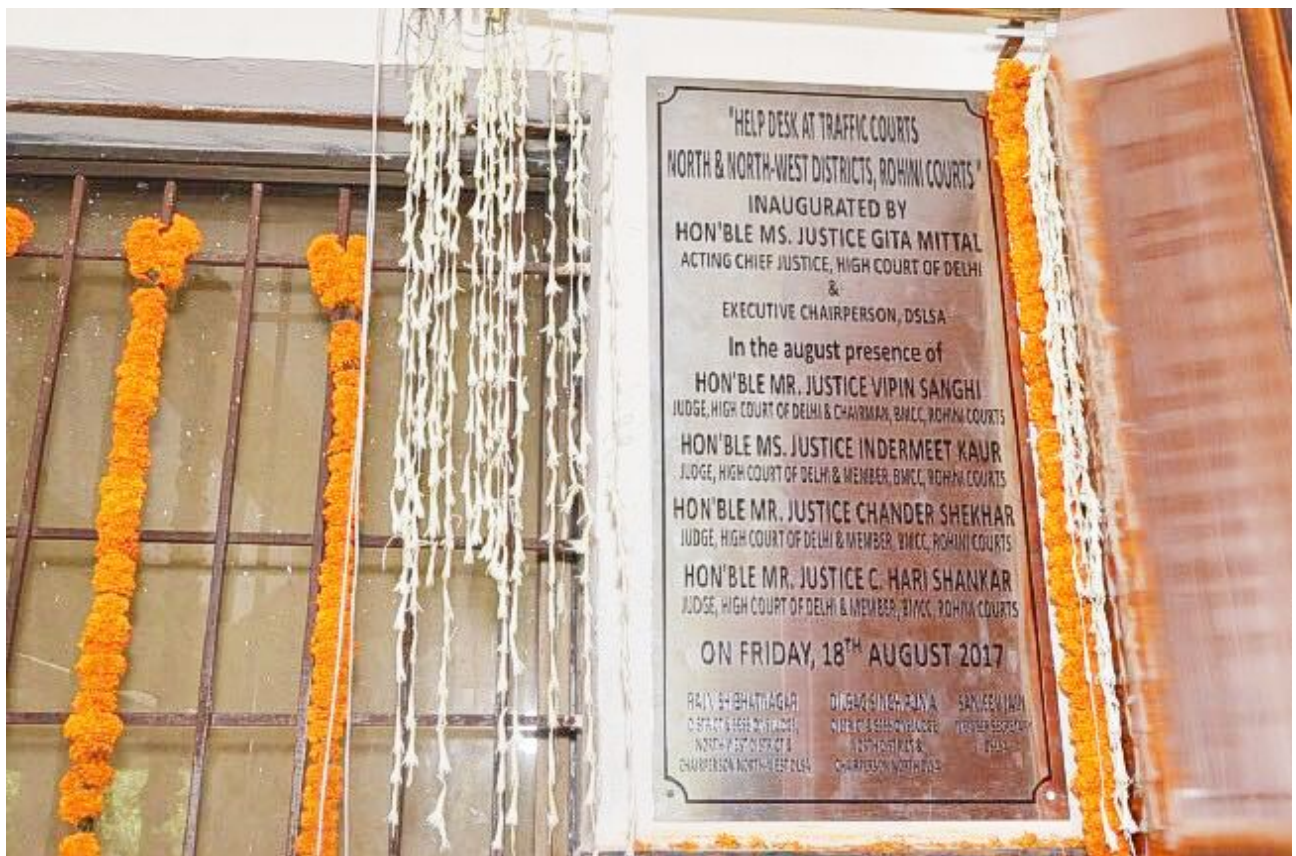 "HELP DESK AT TRAFFIC COURTS
NORTH & NORTH-WEST DISTRICTS, ROHINI COURTS"
INAUGURATED BY
HON'BLE MS. JUSTICE GITA MITTAL
ACTING CHIEF JUSTICE, HIGH COURT OF DELHI
&
EXECUTIVE CHAIRPERSON, DSLSA
In the august presence of
HON'BLE MR. JUSTICE VIPIN SANGHI
JUDGE, HIGH COURT OF DELHI & CHAIRMAN, BMCC, ROHINI COURTS
HON'BLE MS. JUSTICE INDERMEET KAUR
JUDGE, HIGH COURT OF DELHI & MEMBER, BMCC, ROHINI COURTS
HON'BLE MR. JUSTICE CHANDER SHEKHAR
JUDGE, HIGH COURT OF DELHI & MEMBER, BMCC, ROHINI COURTS
HON'BLE MR. JUSTICE C. HARI SHANKAR
JUDGE, HIGH COURT OF DELHI & MEMBER, BMCC, ROHINI COURTS
ON FRIDAY, 18TH AUGUST 2017
BHATNAGAR DILBAG SINGH SANJEEV JAIN
DISTRICT & SESSIONS JUDGE, DISTRICT & SESSIONS JUDGE, MEMBER SECRETARY
NORTH-WEST DISTRICT & NORTH DISTRICT & DSLSA
CHAIRPERSON NORTH-WEST DLSA CHAIRPERSON NORTH DLSA